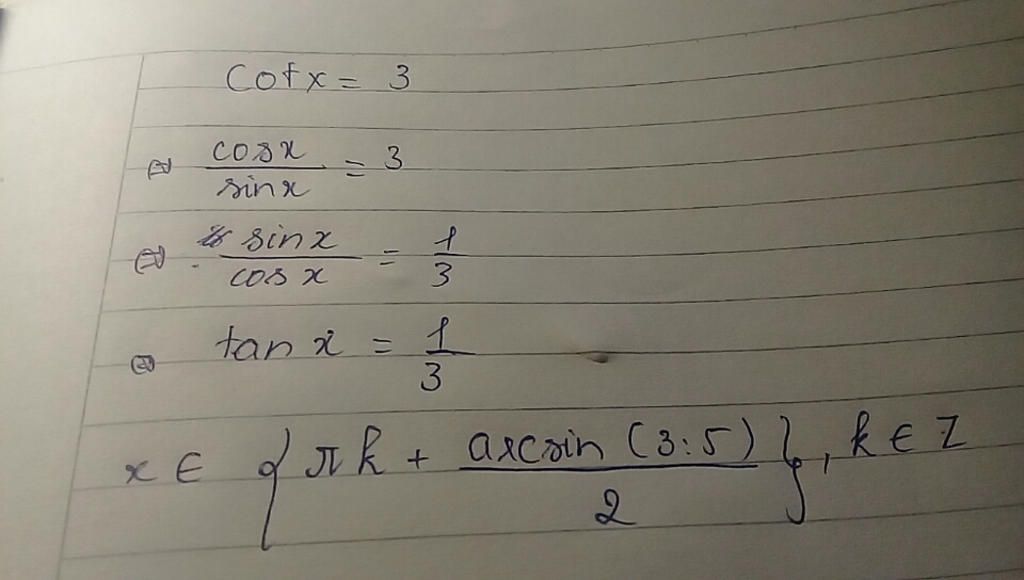 cotx = 3
⇔ cosx/sinx = 3
⇔ sinx/cosx = 1/3
⇔ tan x = 1/3
x ∈ { πk + arcsin (3:5)/2 }, k ∈ Z